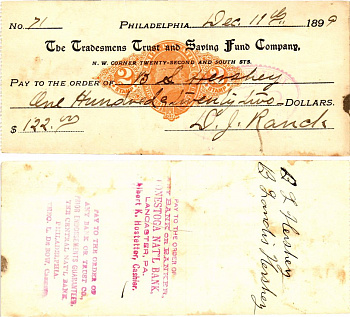 No. 71 Philadelphia, Dec. 11th, 1899
The Tradesmens Trust and Saving Fund Company,
N. W. CORNER TWENTY-SECOND AND SOUTH STS.
PAY TO THE ORDER OF B L Hershey
One Hundred & twenty-two DOLLARS.
$ 122.00 D. J. Ranck
PAY TO THE ORDER OF
ANY BANK OR TRUST CO.
PRIOR ENDORSEMENTS GUARANTEED,
THE CENTRAL NAT'L BANK
PHILADELPHIA.
PAY TO THE ORDER OF
ANY BANK OR BANKER,
CONESTOGA NAT'L BANK,
LANCASTER, PA.
Albert K. Hostetter, Cashier.
B L Hershey
B Landis Hershey